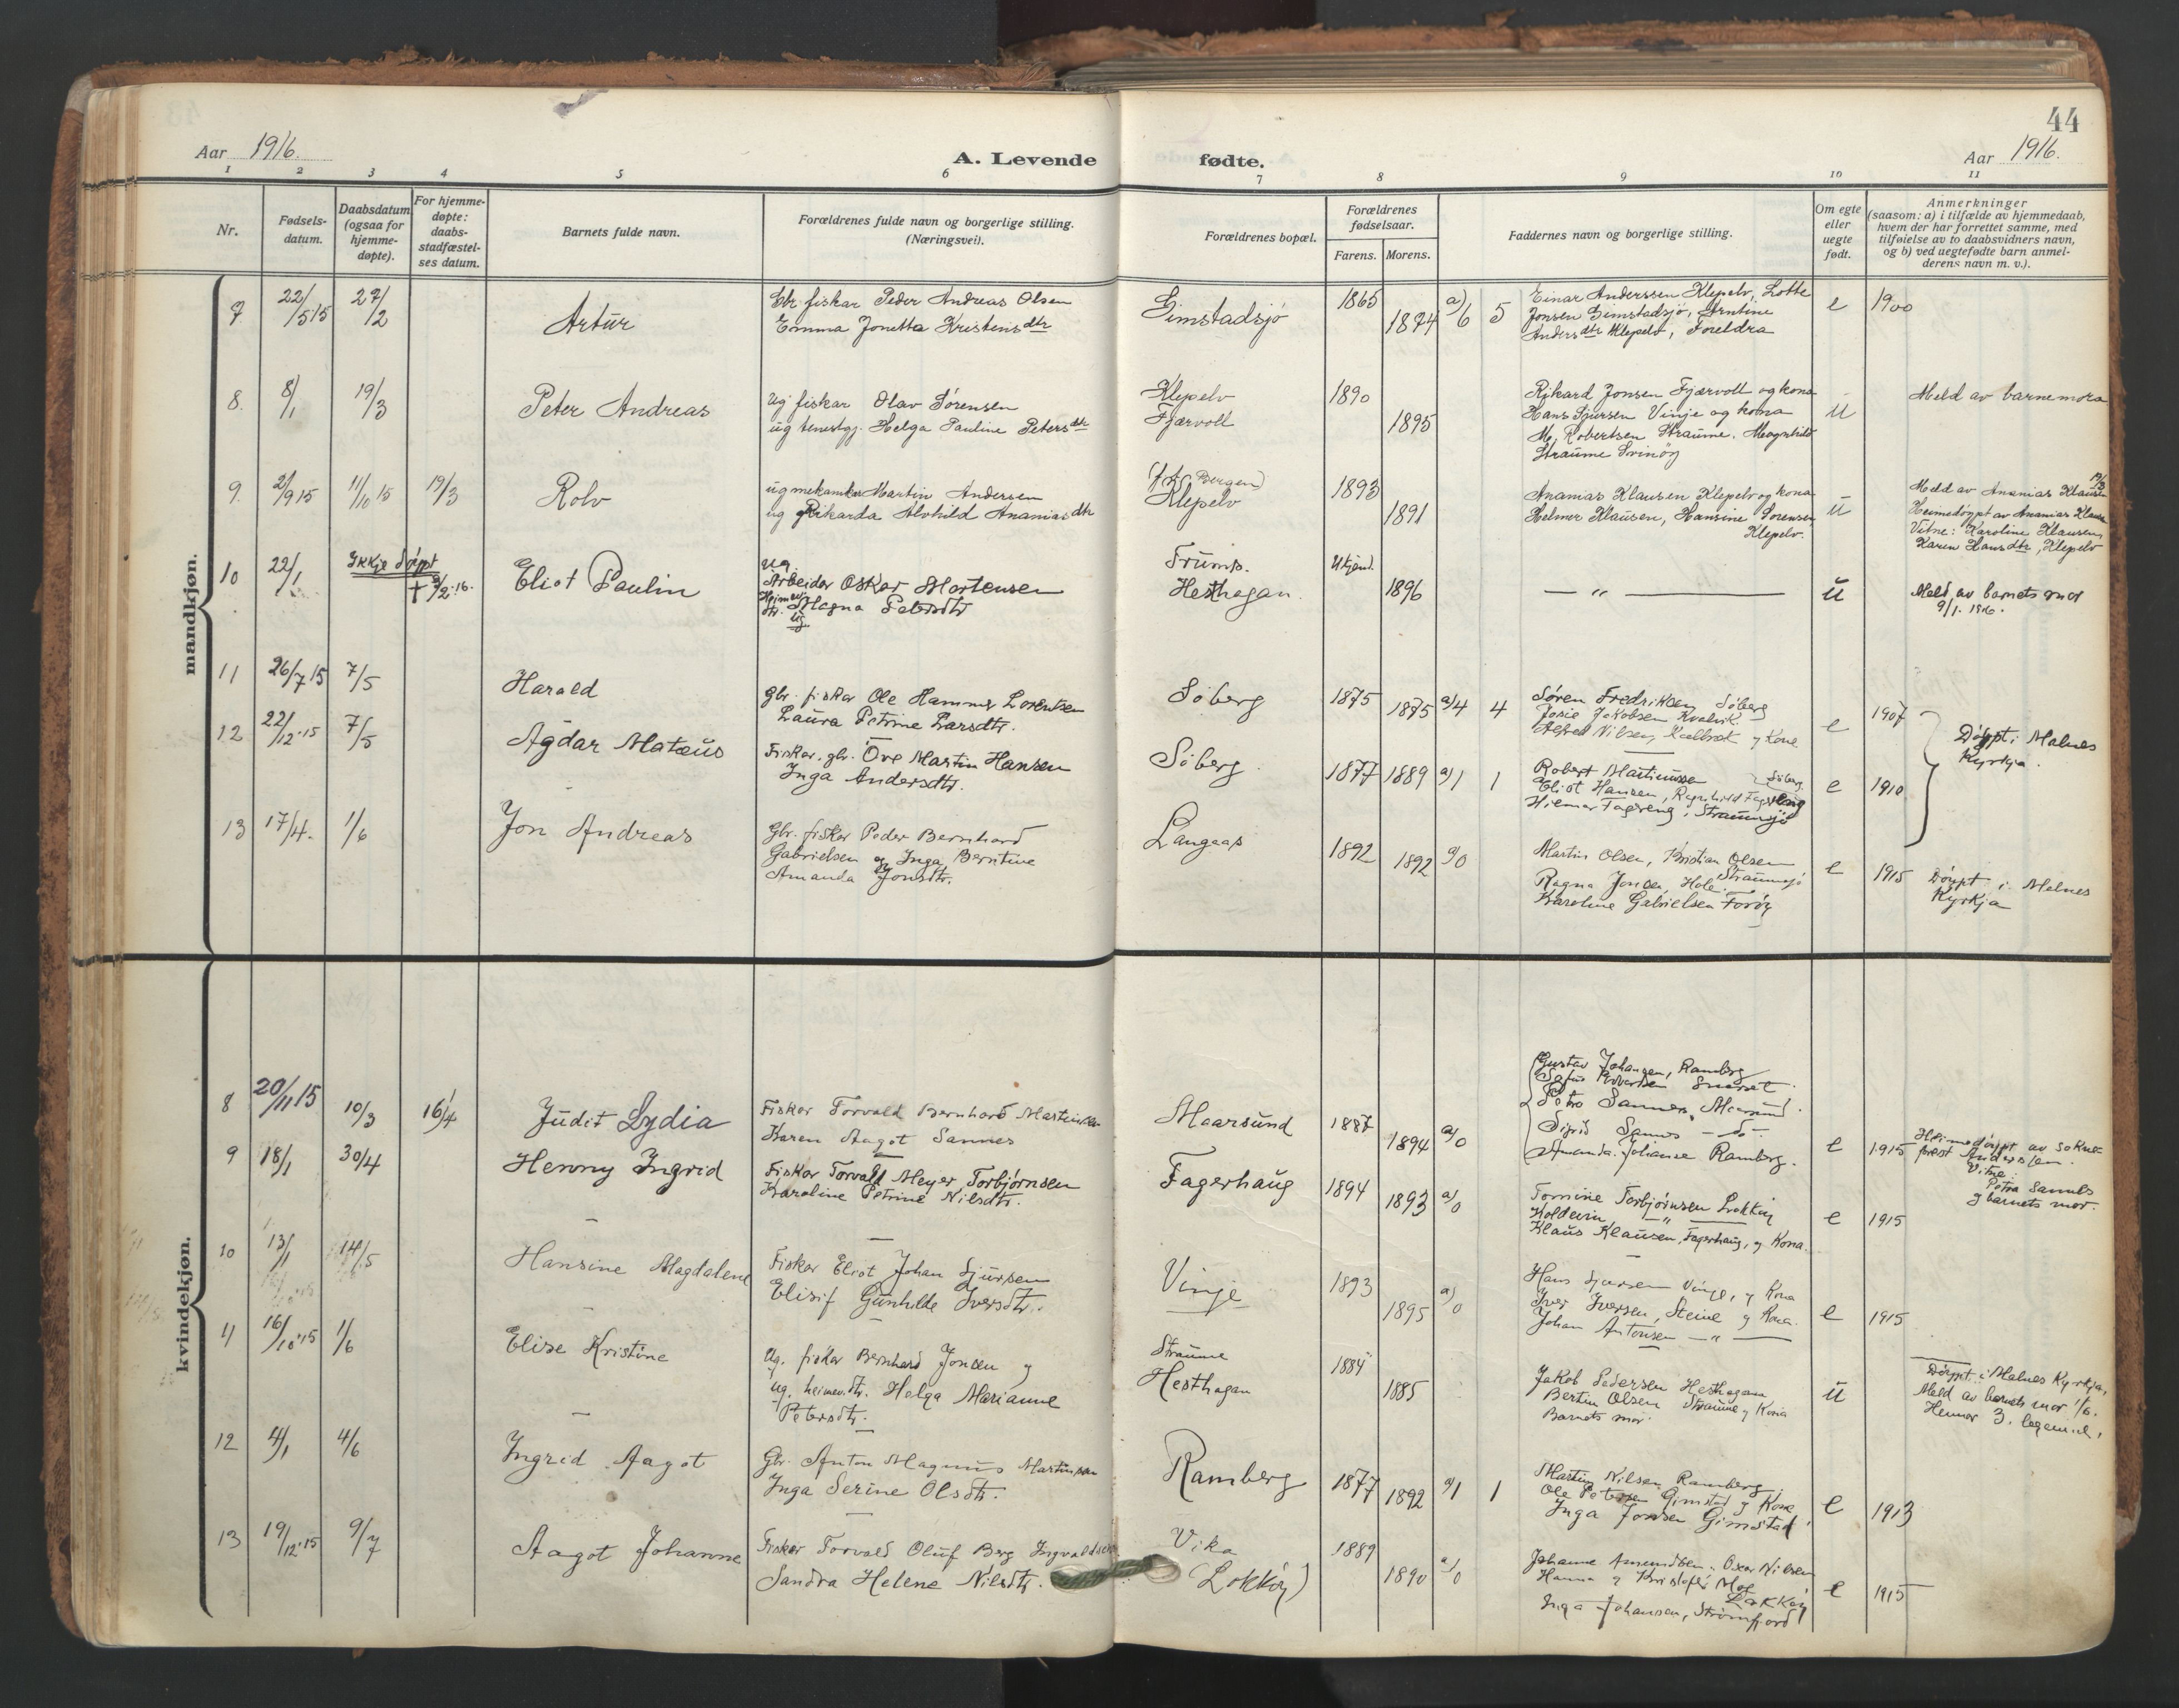 44
Aar 1916.
A. Levende
fødte.
Aar 1916.
1 2 3 4 5 6 7 8 9 10 11
Nr.
Fødsels-
datum.
Daabsdatum
(ogsaa for
hjemme-
døpte).
For hjemme-
døpte:
daabs-
stadfæstel-
ses datum.
Barnets fulde navn.
Forældrenes fulde navn og borgerlige stilling.
(Næringsvei).
Forældrenes bopæl.
Forældrenes
fødselsaar.
Farens. Morens.
Faddernes navn og borgerlige stilling.
Om egte
eller
uegte
født.
Anmerkninger
(saasom: a) i tilfælde av hjemmedaab,
hvem der har forrettet samme, med
tilføielse av to daabsvidners navn,
og b) ved uegtefødte barn anmel-
derens navn m. v.).
mandkjøn.
7 22/5 15 27/2
Artur
Gbr. fiskar Peder Andreas Olsen
Emma Jonetta Kristensdtr
Gimstadsjö
1865 1874 a)6 5
Einar Anderssen Klepelv, Lotte
Jonsen Gimstadsjö, Arntine
Andersdtr Klepelv, Foreldra
e 1900
8. 8/1 19/3
Peter Andreas
ug fiskar Olav Sörensen
ug tenestgj. Helga Pauline Petersdtr
Klepelv
Fjærvoll
1890 1895
Rikard Jonsen Fjærvoll og kona
Hans Sjursen Vinje og kona
M. Robertsen Straume. Magnhild
Straume Svinöy
u
Meld av barnemora
9. 2/9 15 11/10 15 19/3
Rolv
ug mekanikar Martin Andersen
ug Rikarda Alvhild Ananiasdtr
(f.t. Bergen)
Klepelv
1893 1891
Ananias Klausen Klepelv og kona
Helmer Klausen, Hansine Sorensen
Klepelv.
u
Meld av Ananias Klausen
Heimedöypt av Ananias Klausen
Vitne: Karoline Klausen,
Karen Hansdtr, Klepelv
10 22/1 Ikkje döypt
† 9/2.16.
Eliot Paulin
ug.
Arbeider Oskar Mortensen
Heimev.
dtr. Magna Petersdtr
ug.
Trums.
Hesthagan.
Ukjend.
1896
— " —
u
Meld av barnets mor
9/1. 1916.
11 26/7 15 7/5
Harald
Gbr. fiskar Ole Hammer Lorentsen
Laura Petrine Larsdtr.
Söberg
1875 1875 a)4 4
Søren Fredriksen Söberg
Josie Jakobsen Kvalvik
Alfred Nilsen, og Kone
e 1907
Döypt i Malnes
Kyrkja.
12 22/12.15 7/5
Agdar Matæus
Fiskar, gbr. Ove Martin Hansen
Inga Andersdtr.
Söberg
1877 1889 a)1 1
Robert Martinussen Söberg
Eliot Hansen, Ragnhild Fagereng
Hilmar Fagereng, Straumsjö
e 1910
13 17/4. 1/6
Jon Andreas
Gbr. fiskar Peder Bernhard
Gabrielsen og Inga Berntine
Amanda Jonsdtr.
Langaas
1892 1892 a)0
Martin Olsen, Kristian Olsen
Straumsjö
Ragna Jonsen, Hole.
Karoline Gabrielsen Foröy
e 1915
Döypt i Malnes
Kyrkja
kvindekjøn.
8 20/11 15 10/3 16/4
Judit Lydia
Fiskar Torvald Bernhard Martinsen
Karen Aagot Sannes
Maarsund
1887 1894 a)0
Gustav Johansen, Ramberg
Petra Sannes, Maarsund.
Sigrid Sannes — do —
Amanda Johanse Ramberg.
e 1915
Heimedöypt av Sokne-
prest Anderssen.
Vitne:
Petra Sannes
og barnets mor.
9 18/1 30/4
Henny Ingrid
Fiskar Torvald Meyer Torbjörnsen
Karoline Petrine Nilsdtr.
Fagerhaug
1894 1893 a)0
Tomine Torbjörnsen Lokköy
Holdevin — " —
Klaus Klausen, Fagerhaug, og Kona.
e 1915
10 13/1 14/5
Hansine Magdalene
Fiskar Eliot Johan Sjursen
Elisif Gunhilde Iversdtr.
Vinje
1893 1895 a)0
Hans Sjursen Vinje, og Kona
Iver Iversen, Steine og Kona.
Johan Antonsen — " —
e 1915
11 16/10.15 1/6
Elise Kristine
Ug. fiskar Bernhard Jonsen og
ug. heimev.dtr. Helga Marianne
Petersdtr.
Straume
Hesthagan
1884 1885
Jakob Pedersen Hesthagan
Bertin Olsen Straume og Kona
Barnets mor.
u
Döypt i Malnes Kyrkja,
Meld av barnets mor 1/6.
Hennar 3.
12 4/1 4/6
Ingrid Aagot
Gbr. Anton Magnus Martinsen
Inga Serine Olsdtr.
Ramberg
1877 1892 a)1 1
Martin Nilsen Ramberg,
Ole Petersen Gimstad og Kone
Inga Jonsen Gimstad.
e 1913
13 19/12.15 9/7
Aagot Johanne
Fiskar Torvald Oluf Berg Ingvaldsen
Sandra Helene Nilsdtr.
Vika
(Lokköy)
1889 1890 a)0
Johanne Amundsen. Oskar Nilsen
Hanna og Kristofer Moe
Lokköy
Inga Johansen, Strömfjord
e 1915